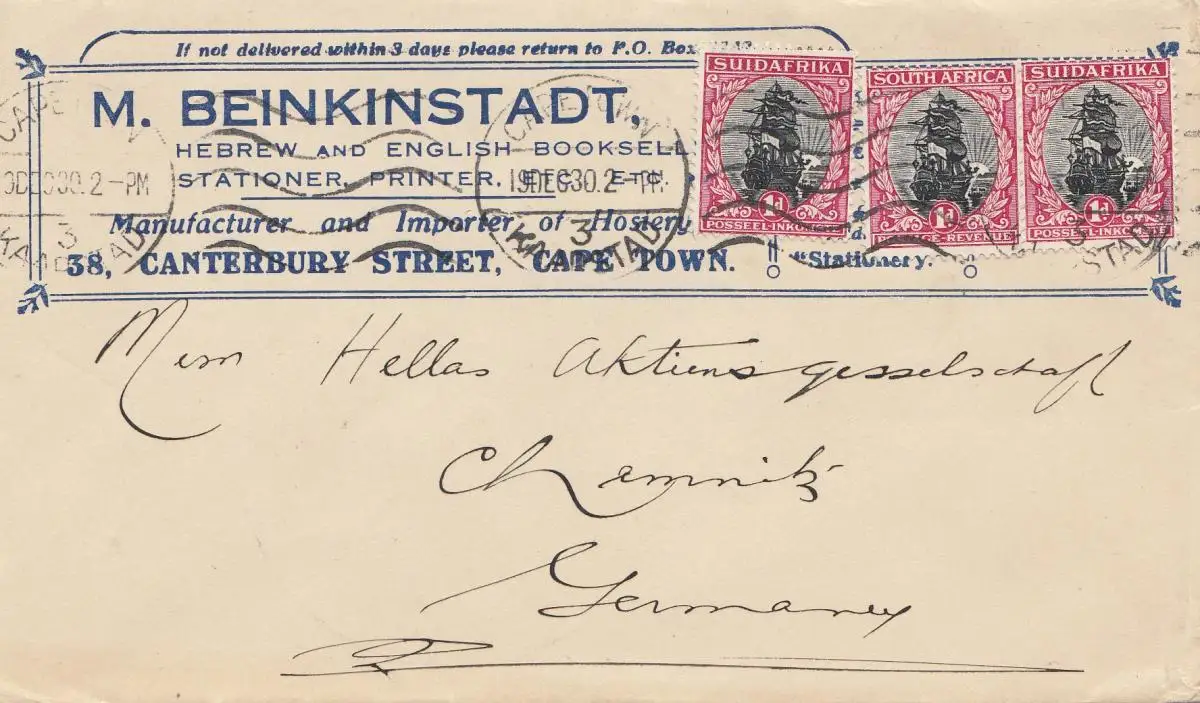 If not delivered within 3 days please return to P.O. Box
M. BEINKINSTADT,
HEBREW AND ENGLISH BOOKSELL
STATIONER, PRINTER, ETC., ETC.
Manufacturer and Importer of Hosiery
38, CANTERBURY STREET, CAPE TOWN.
"Stationery.
SUIDAFRIKA
1d
POSSEEL-INKOMSTE
SOUTH AFRICA
1d
E-REVENUE
SUIDAFRIKA
1d
POSSEEL-INKOMSTE
CAPE TOWN
9DEC30.2-PM
3
KAAPSTAD
CAPE TOWN
19DEC30.2-PM
3
KAAPSTAD
3
STAD
Messrs Hellas Aktiensgesselschaft
Chemnitz
Germany